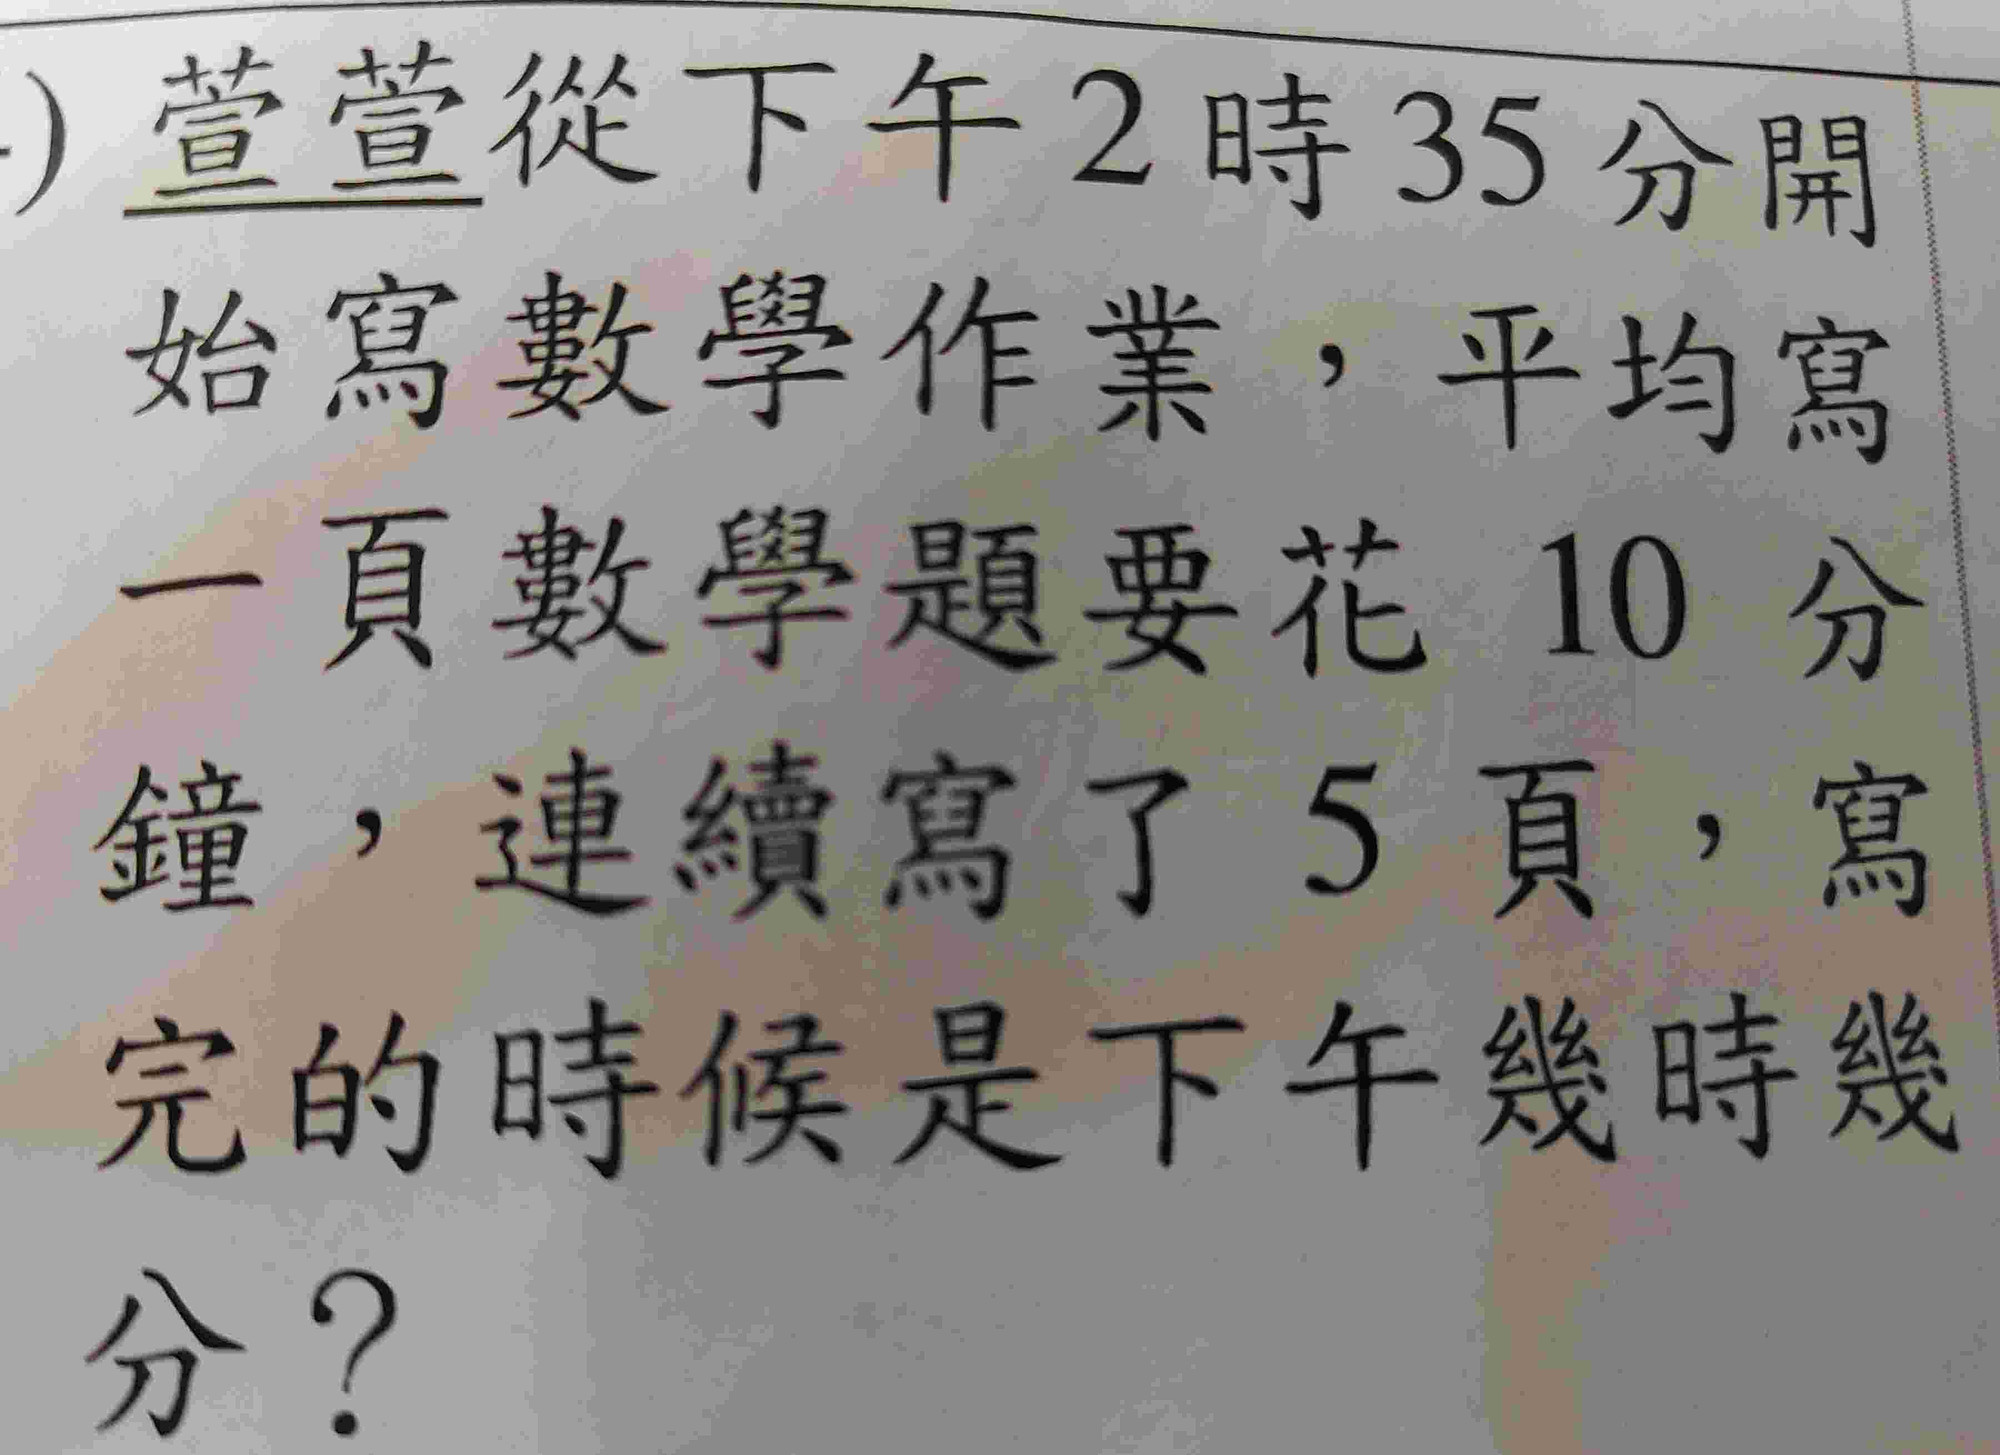 )萱萱從下午2時35分開
始寫數學作業，平均寫
一頁數學題要花 10 分
鐘，連續寫了 5 頁，寫
完的時候是下午幾時幾
分？